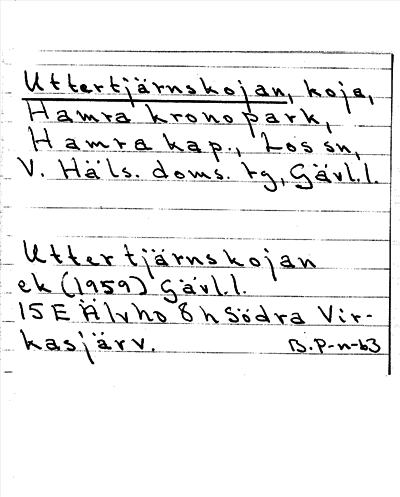 Uttertjärnskojan, koja,
Hamra kronopark,
Hamra kap., Los sn,
V. Häls. doms. tg, Gävl.l.
Uttertjärnskojan
ek (1959) Gävl.l.
15E Älvho 8h Södra Vir-
kasjärv.
B.P-n-63